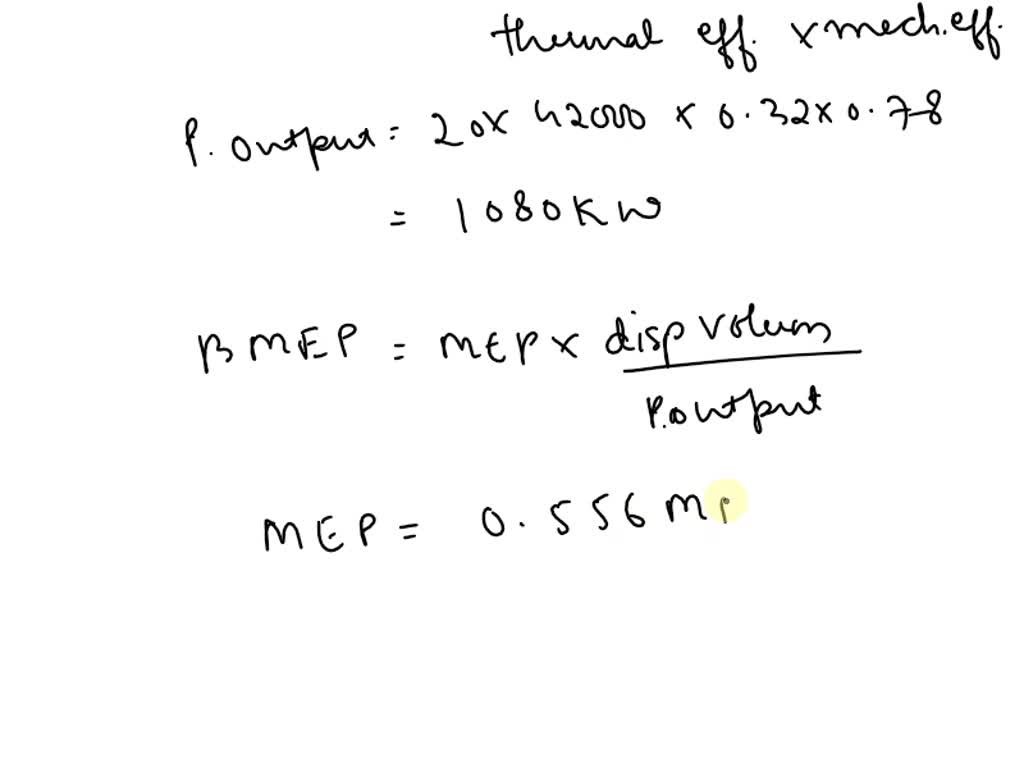 thermal eff. x mech. eff.
P. output = 20 x 42000 x 0.32 x 0.78
= 1080 KW
BMEP = MEP x disp volum
P. output
MEP = 0.556 MP